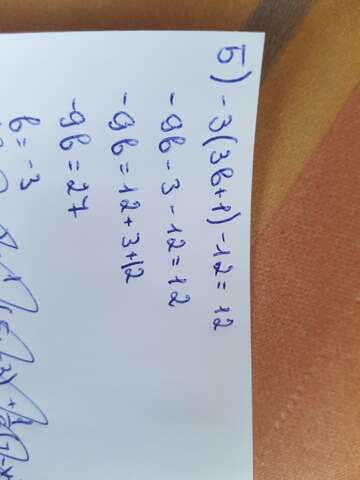 Б) -3(3b+1)-12=12
-9b-3-12=12
-9b=12+3+12
-9b=27
b=-3